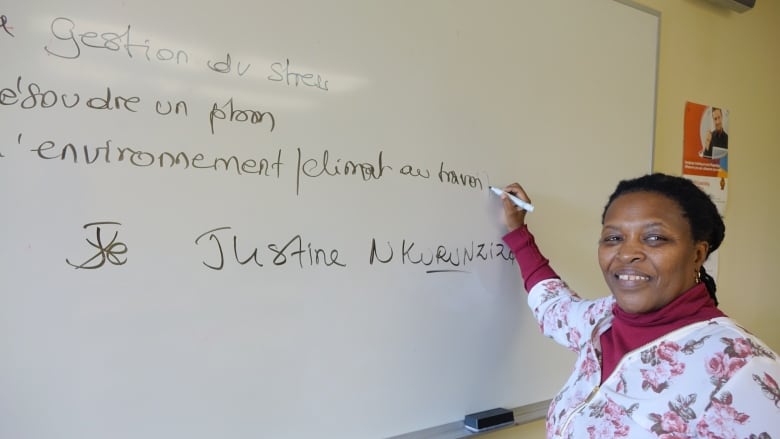 Gestion du stress
ésoudre un pbm
l'environnement / climat au travail
Je Justine NKURUNZIZA